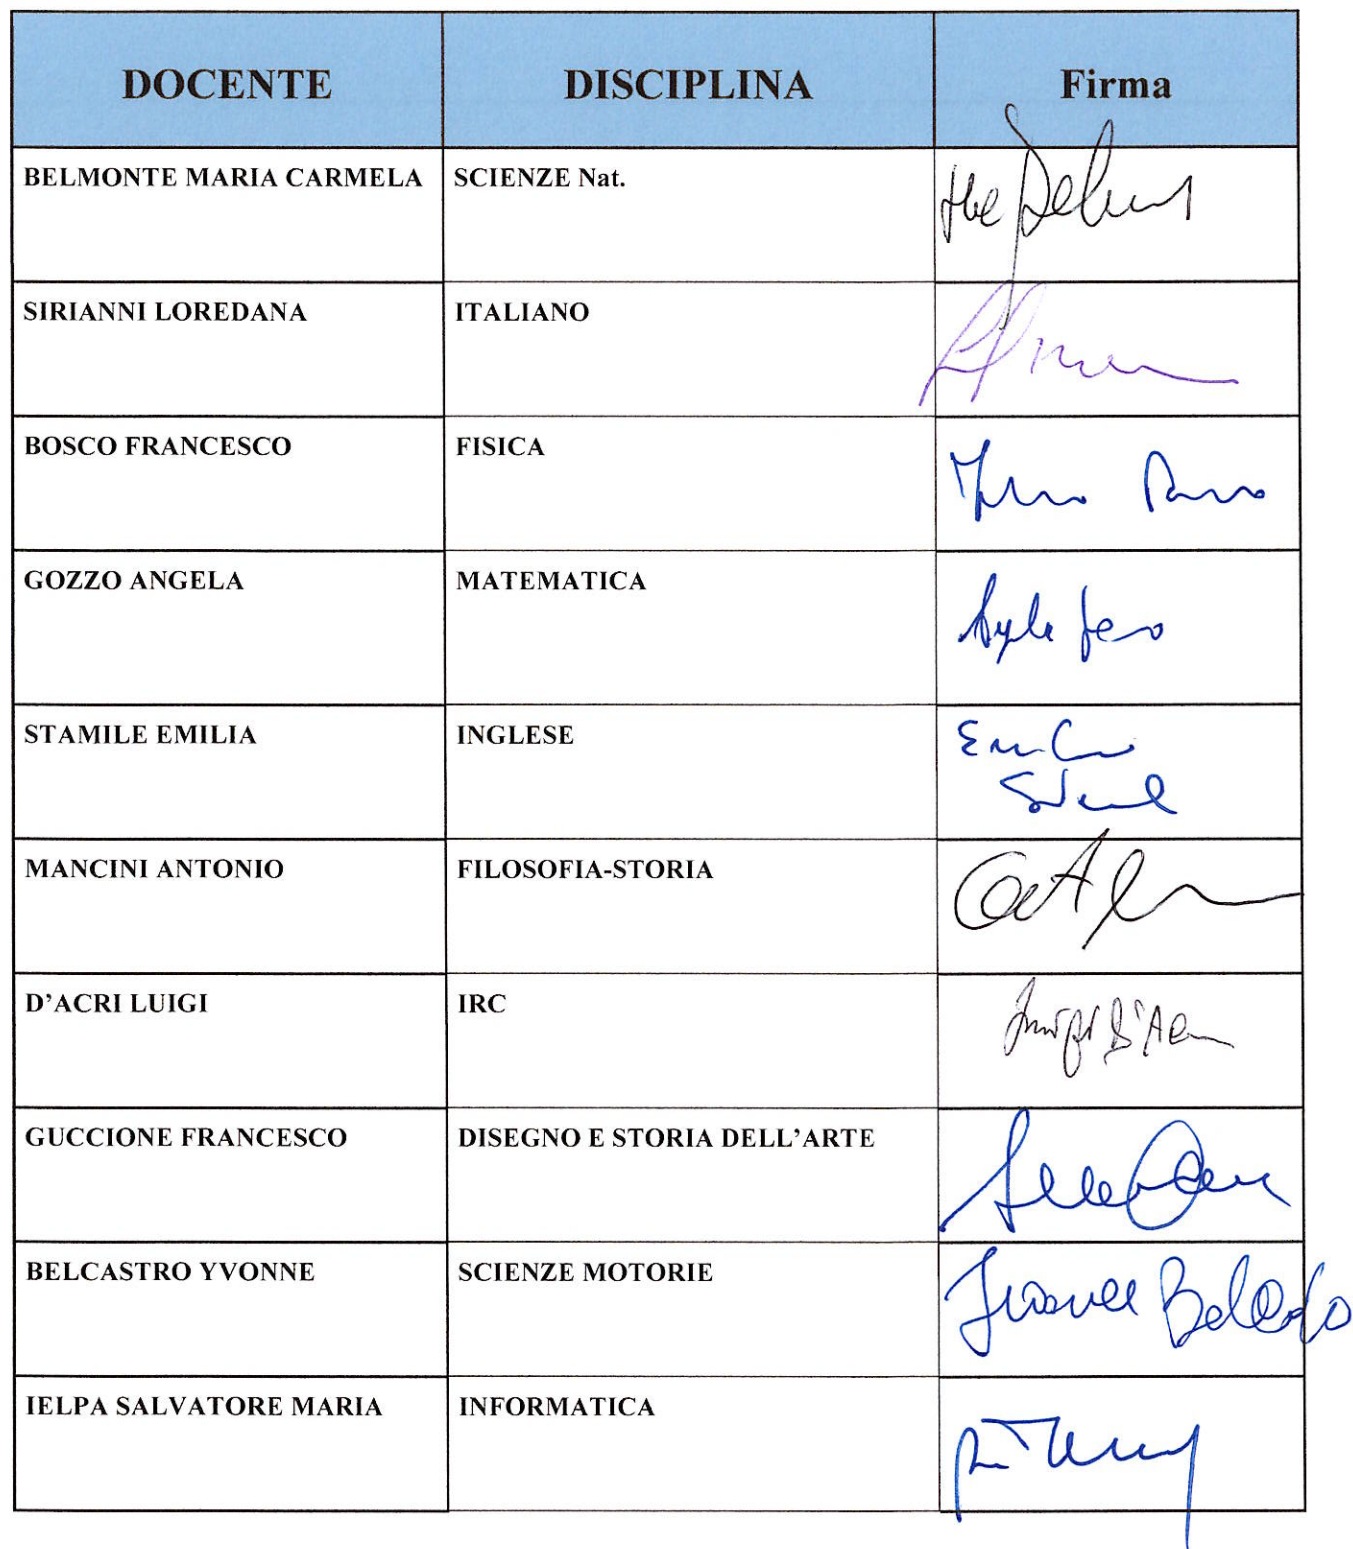 DOCENTE DISCIPLINA Firma
BELMONTE MARIA CARMELA SCIENZE Nat.
SIRIANNI LOREDANA ITALIANO
BOSCO FRANCESCO FISICA
GOZZO ANGELA MATEMATICA
STAMILE EMILIA INGLESE
MANCINI ANTONIO FILOSOFIA-STORIA
D'ACRI LUIGI IRC
GUCCIONE FRANCESCO DISEGNO E STORIA DELL'ARTE
BELCASTRO YVONNE SCIENZE MOTORIE
IELPA SALVATORE MARIA INFORMATICA